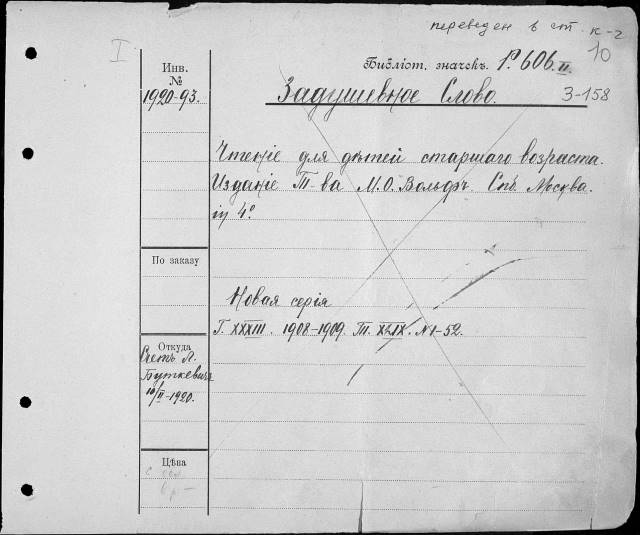 переведен в ст. к-г
I
10
Библіот. значекъ. P. 606. II.
Инв.
№
1920-93.
Задушевное Слово.
З-158
Чтеніе для дѣтей старшаго возраста.
Изданіе Т-ва М. О. Вольфъ. Спб. Москва.
in 4°
По заказу
Новая серія
Г. XXXIII. 1908-1909. Т. XLIX. N 1-52.
Откуда
Счетъ Л.
Буткевича
II-1920.
Цѣна